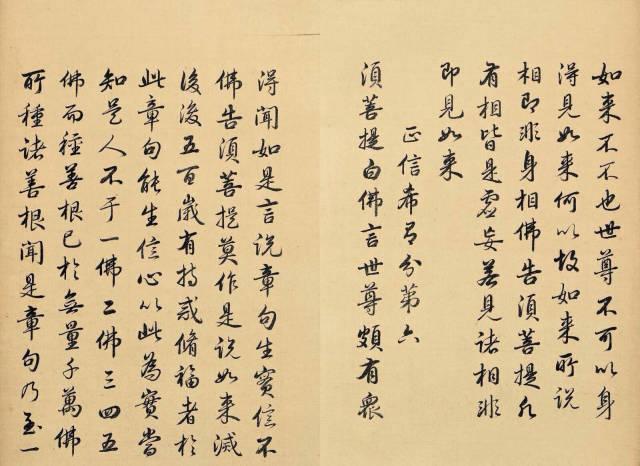 如来不不也世尊不可以身
得見如来何以故如来所説
相即非身相佛告須菩提凡
有相皆是虚妄若見諸相非
即見如来
正信希有分第六
須菩提白佛言世尊頗有衆
得聞如是言説章句生實信不
佛告須菩提莫作是説如来滅
後後五百歳有持戒脩福者於
此章句能生信心以此為實當
知是人不于一佛二佛三四五
佛而種善根已於無量千萬佛
所種諸善根聞是章句乃至一